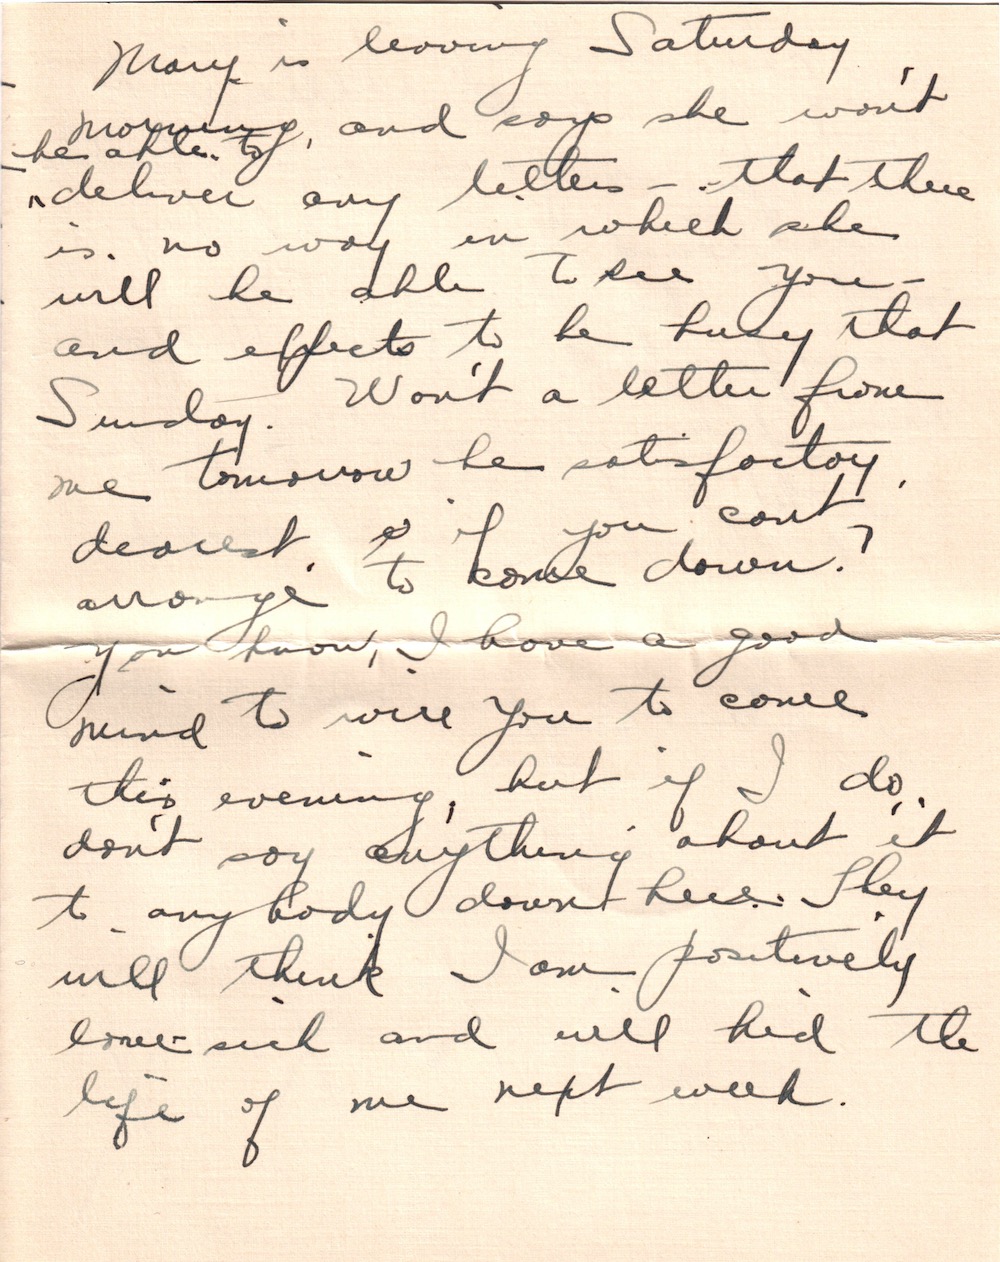 Mary is leaving Saturday
morning, and says she won't
be able to
deliver any letters — that there
is no way in which she
will be able to see you —
and effects to be busy that
Sunday. Won't a letter from
me tomorrow be satisfactory,
dearest, if you can't
arrange to come down?
You know, I have a good
mind to wire you to come
this evening, but if I do,
don't say anything about it
to anybody down here. They
will think I am positively
love-sick and will kid the
life of me next week.